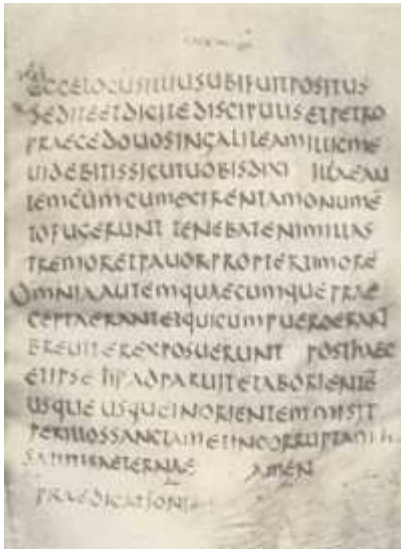 ECCELOCUSILLIUSUBIFUITPOSITUS
SEDITEETDICITEDISCIPULISETPETRO
PRAECEDOUOSINGALILEAMILLICME
UIDEBITISSICUTUOBISDIXI ILLAEAU
TEMCUMCUMEXIRENTAMONUMĒ
TOFUGERUNT TENEBATENIMILLAS
TREMORETPAUORPROPTERTIMORĒ
OMNIAAUTEMQUAECUMQUEPRAE
CEPTAERANTETQUICUMPUEROERANT
BREUITEREXPOSUERUNT POSTHAEC
ETIPSE ADPARUITETABORIENTĒ
USQUE USQUEINORIENTEMMISIT
PERILLOSSANCTAMETINCORRUPTAM
SALUTISAETERNAE AMEN
PRAEDICATIONIS